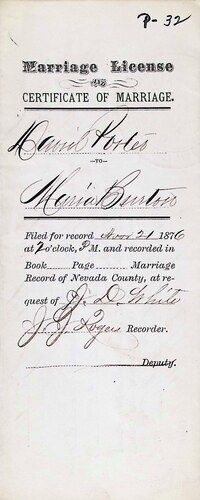 P-32
Marriage License
AND
CERTIFICATE OF MARRIAGE.
David Porter
—TO—
Maria Burton
Filed for record Novr 21 1876
at 2 o'clock, P M. and recorded in
Book Page Marriage
Record of Nevada County, at re-
quest of J. D. White
J. J. Rogers Recorder.
Deputy.